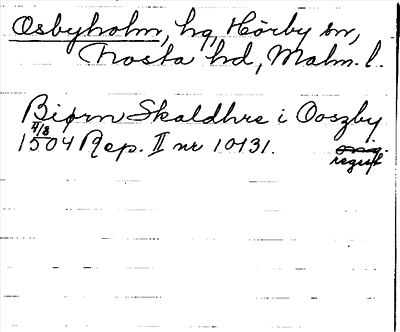 Osbyholm, hg, Hörby sn,
Frosta hd, Malm. l.
Biørn Skaldhre i Ooszby
4/8
1504 Rep. II nr 10131.
orig.
regist